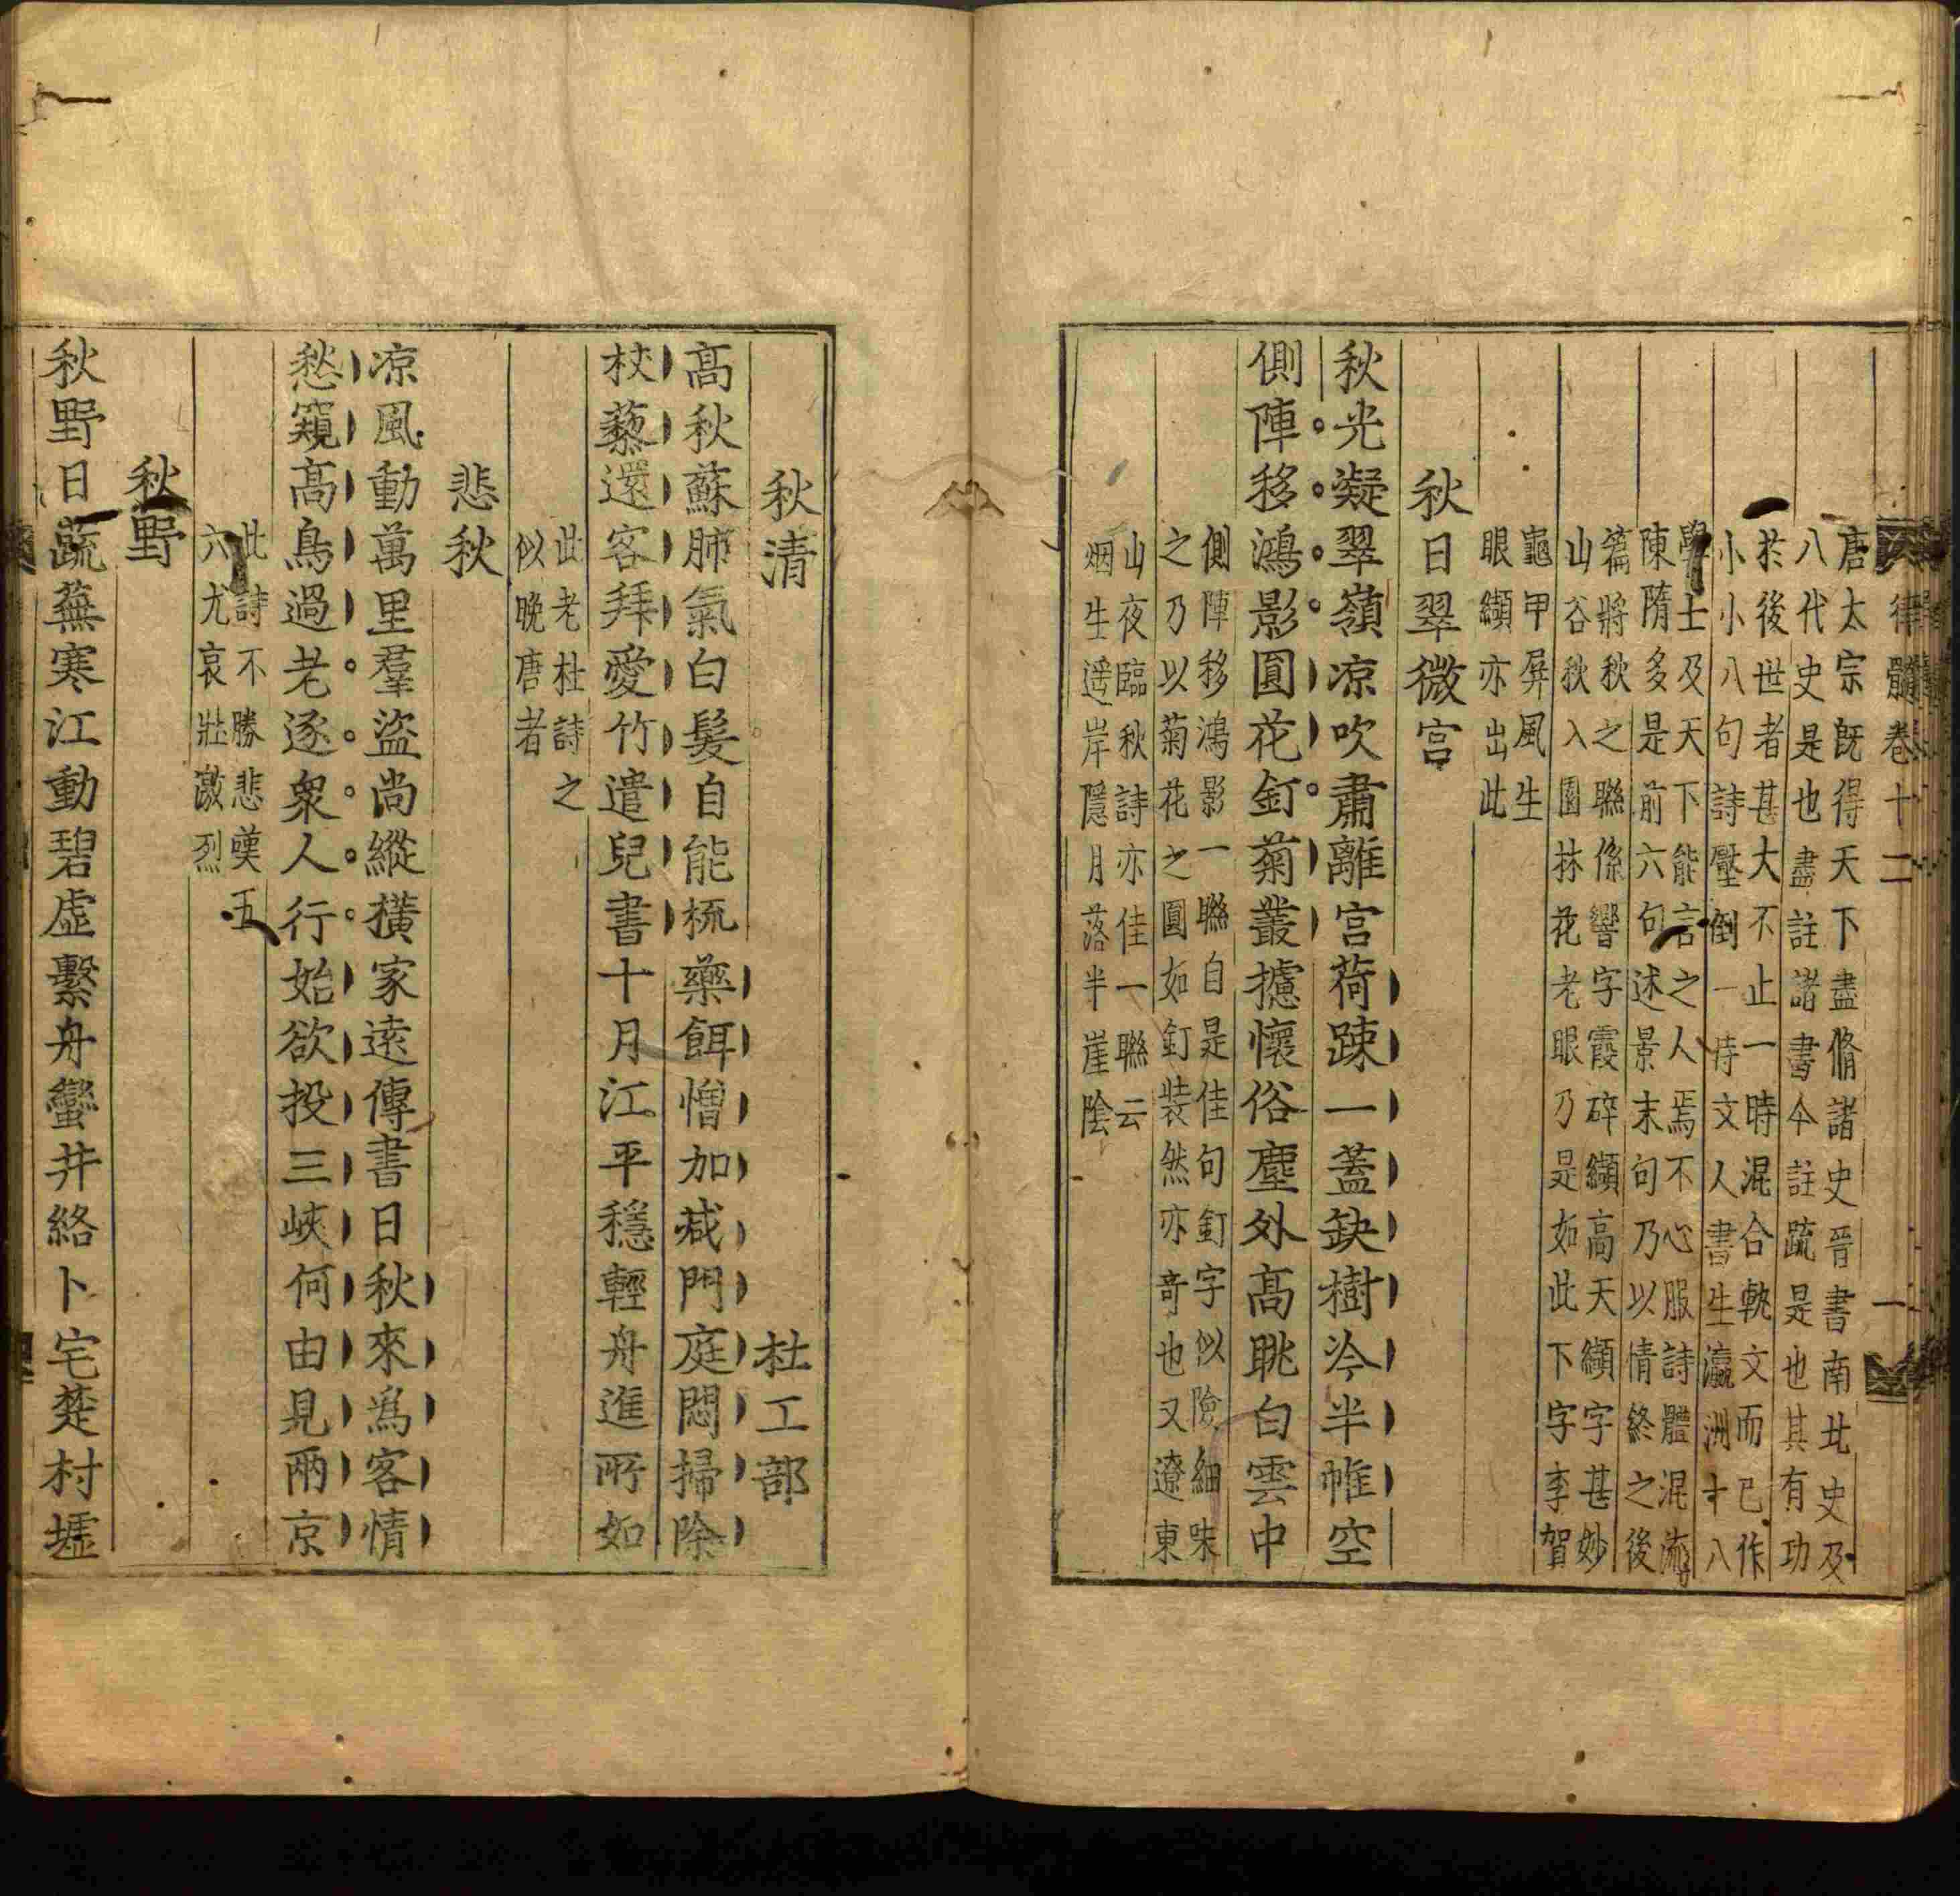 律髓卷十二
一
唐太宗旣得天下盡脩諸史晉書南北史及
八代史是也盡註諸書今註疏是也其有功
於後世者甚大不止一時混合軌文而已作
小小八句詩壓倒一時文人書生瀛洲十八
學士及天下能言之人焉不心服詩體混淆
陳隋多是前六句述景末句乃以情終之後
篇將秋之聯係響字霞碎纈高天纈字甚妙
山谷秋入園林花老眼乃是如此下字李賀
龜甲屏風生
眼纈亦出此
秋日翠微宮
秋光凝翠嶺凉吹肅離宮荷踈一蓋缺樹冷半帷空
側陣移鴻影圓花釘菊叢攄懷俗塵外高眺白雲中
側陣移鴻影一聯自是佳句釘字似險細味
之乃以菊花之圓如釘裝然亦奇也又遼東
山夜臨秋詩亦佳一聯云
烟生遥岸隱月落半崖陰
秋清
杜工部
高秋蘇肺氣白髮自能梳藥餌憎加减門庭悶掃除
杖藜還客拜愛竹遣兒書十月江平穩輕舟進所如
此老杜詩之
似晚唐者
悲秋
凉風動萬里羣盜尚縱橫家遠傳書日秋來爲客情
愁窺高鳥過老逐衆人行始欲投三峽何由見兩京
此詩不勝悲嘆五
六尤哀壯激烈
秋野
秋野日蔬蕪寒江動碧虛繫舟蠻井絡卜宅楚村墟